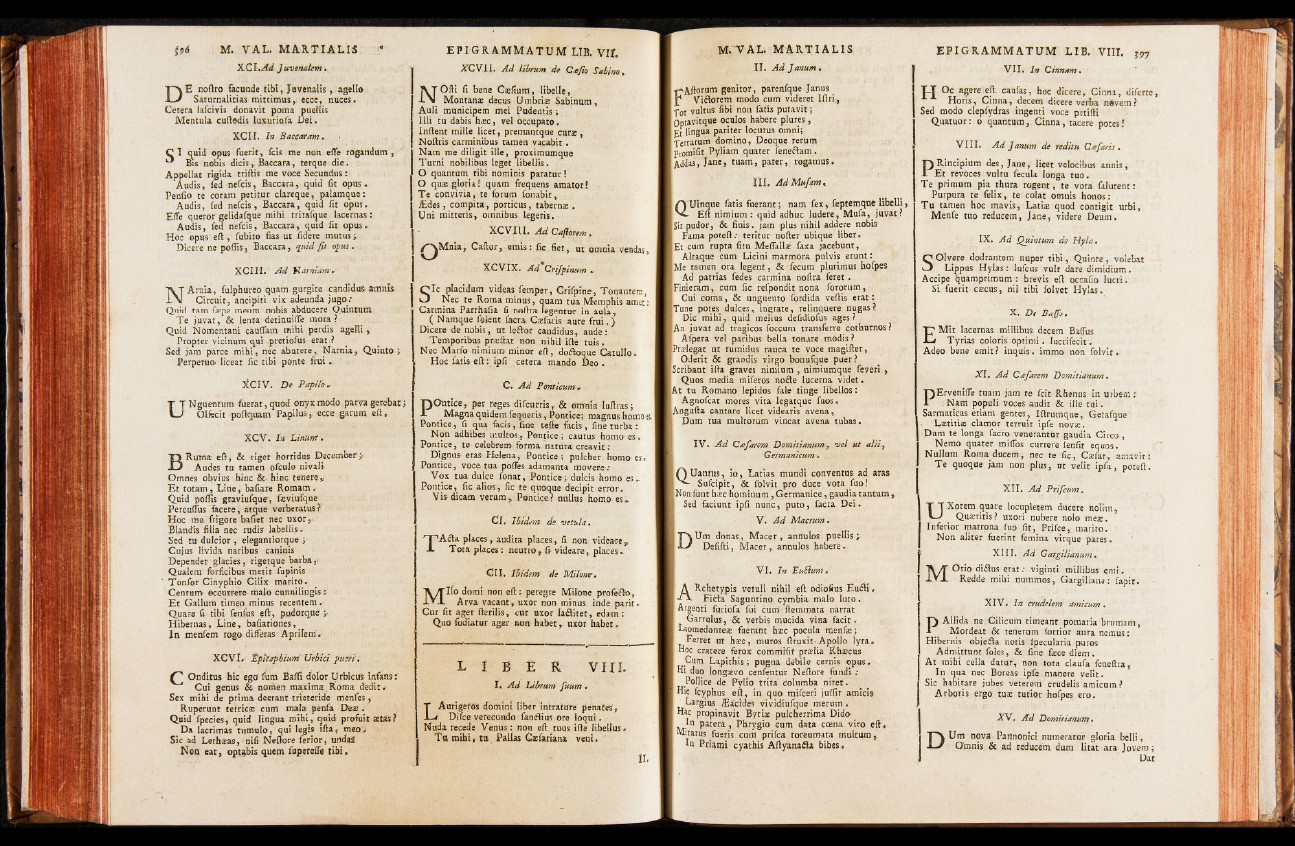 596 M. VAL. MARTIALIS
XCI. Ad Juvenalem.
DE noſtro facunde tibi, Juvenalis, agello
Saturnalitias mittimus, ecce, nuces.
Cetera laſcivis donavit poma puellis
Mentula cuſtodis luxurioſa Dei.
XCII. In Baccaram.
SI quid opus fuerit, ſcis me non eſſe rogandum,
Bis nobis dicis, Baccara, terque die.
Appellat rigida triſtis me voce Secundus:
Audis, ſed neſcis, Baccara, quid ſit opus.
Penſio te coram petitur clareque, palamque:
Audis, ſed neſcis, Baccara, quid ſit opus.
Eſſe queror gelidaſque mihi tritaſque lacernas:
Audis, ſed neſcis, Baccara, quid ſit opus.
Hoc opus eſt, ſubito fias ut ſidere mutus;
Dicere ne poſſis, Baccara, quid ſit opus.
XCIII. Ad Narniam.
NArnia, ſulphureo quam gurgite candidus amnis
Circuit, ancipiti vix adeunda jugo:
Quid tam ſæpe meum nobis abducere Quintum
Te juvat, & lenta detinuiſſe mora?
Quid Nomentani cauſſam mihi perdis agelli,
Propter vicinum qui pretioſus erat?
Sed jam parce mihi, nec abutere, Narnia, Quinto;
Perpetuo liceat ſic tibi ponte frui.
XCIV. De Papilo.
UNguentum fuerat, quod onyx modo parva gerebat;
Olfecit poſtquam Papilus, ecce garum eſt.
XCV. In Linum.
BRuma eſt, & riget horridus December;
Audes tu tamen oſculo nivali
Omnes obvius hinc & hinc tenere,
Et totam, Line, baſiare Romam.
Quid poſſis graviuſque, ſeviuſque
Percuſſus facere, atque verberatus?
Hoc me frigore baſiet nec uxor,
Blandis filia nec rudis labellis.
Sed tu dulcior, elegantiorque;
Cujus livida naribus caninis
Dependet glacies, rigetque barba,
Qualem forficibus metit ſupinis
Tonſor Cinyphio Cilix marito.
Centum occurrere malo cunnilingis:
Et Gallum timeo minus recentem.
Quare ſi tibi ſenſus eſt, pudorque;
Hibernas, Line, baſiationes,
In menſem rogo differas Aprilem.
XCVI. Epitaphium Urbici pueri.
COnditus hic ego ſum Baſſi dolor Urbicus infans:
Cui genus & nomen maxima Roma dedit.
Sex mihi de prima deerant trieteride menſes,
Ruperunt tetricæ cum mala penſa Deæ.
Quid ſpecies, quid lingua mihi, quid profuit ætas?
Da lacrimas tumulo, qui legis iſta, meo.
Sic ad Lethæas, niſi Neſtore ſerior, undas
Non eat, optabis quem ſupereſſe tibi.
EPIGRAMMATUM LIB. VII.
XCVII. Ad librum de Cæſio Sabino.
NOſti ſi bene Cæſium, libelle,
Montanæ decus Umbriæ Sabinum,
Auli municipem mei Pudentis;
Illi tu dabis hæc, vel occupato.
Inſtent mille licet, premantque curæ,
Noſtris carminibus tamen vacabit.
Nam me diligit ille, proximumque
Turni nobilibus leget libellis.
O quantum tibi nominis paratur!
O quæ gloria! quam frequens amator!
Te convivia, te forum ſonabit,
Ædes, compita, porticus, tabernæ.
Uni mitteris, omnibus legeris.
XCVIII. Ad Caſtorem.
OMnia, Caſtor, emis: ſic fiet, ut omnia vendas.
XCVIX. Ad Criſpinum.
SIc placidum videas ſemper, Criſpine, Tonantem,
Nec te Roma minus, quam tua Memphis amet:
Carmina Parrhaſia ſi noſtra legentur in aula,
(Namque ſolent ſacra Cæſaris aure frui.)
Dicere de nobis, ut lector candidus, aude:
Temporibus præſtat non nihil iſte tuis.
Nec Marſo nimium minor eſt, doctoque Catullo.
Hoc ſatis eſt: ipſi cetera mando Deo.
C. Ad Ponticum.
POntice, per reges diſcurris, & omnia luſtras;
Magna quidem ſequeris, Pontice; magnus homo es.
Pontice, ſi qua facis, ſine teſte facis, ſine turba:
Non adhibes multos, Pontice; cautus homo es.
Pontice, te celebrem forma natura creavit:
Dignus eras Helena, Pontice; pulcher homo es.
Pontice, voce tua poſſes adamanta movere:
Vox tua dulce ſonat, Pontice; dulcis homo es.
Pontice, ſic alios, ſic te quoque decipit error.
Vis dicam verum, Pontice? nullus homo es.
CI. Ibidem de vetula.
TActa places, audita places, ſi non videare,
Tota places: neutro, ſi videare, places.
CII. Ibidem de Milone.
MIlo domi non eſt: peregre Milone profecto,
Arva vacant, uxor non minus inde parit.
Cur ſit ager ſterilis, cur uxor lactitet, edam:
Quo fodiatur ager non habet, uxor habet.
LIBER VIII.
I. Ad Librum ſuum.
LAurigeros domini liber intrature penates,
Diſce verecundo ſanctius ore loqui.
Nuda recede Venus: non eſt tuus iſte libellus.
Tu mihi, tu Pallas Cæſariana veni.
II.
M. VAL. MARTIALIS
II. Ad Janum.
FAſtorum genitor, parenſque Janus
Victorem modo cum videret Iſtri,
Tot vultus ſibi non ſatis putavit;
Optavitque oculos habere plures,
Et lingua pariter locutus omni;
Terrarum domino, Deoque rerum
Promiſit Pyliam quater ſenectam.
Addas, Jane, tuam, pater, rogamus.
III. Ad Muſam.
QUinque ſatis fuerant; nam ſex, ſeptemque libelli,
Eſt nimium: quid adhuc ludere, Muſa, juvat?
Sit pudor, & finis. jam plus nihil addere nobis
Fama poteſt: teritur noſter ubique liber.
Et cum rupta ſitu Meſſallæ ſaxa jacebunt,
Altaque cum Licini marmora pulvis erunt:
Me tamen ora legent, & ſecum plurimus hoſpes
Ad patrias ſedes carmina noſtra feret.
Finieram, cum ſic reſpondit nona ſororum,
Cui coma, & unguento ſordida veſtis erat:
Tune potes dulces, ingrate, relinquere nugas?
Dic mihi, quid melius deſidioſus ages?
An juvat ad tragicos ſoccum transferre cothurnos?
Aſpera vel paribus bella tonare modis?
Prælegat ut tumidus rauca te voce magiſter,
Oderit & grandis virgo bonuſque puer?
Scribant iſta graves nimium, nimiumque ſeveri,
Quos media miſeros nocte lucerna videt.
At tu Romano lepidos ſale tinge libellos:
Agnoſcat mores vita legatque ſuos.
Anguſta cantare licet videaris avena,
Dum tua multorum vincat avena tubas.
IV. Ad Cæſarem Domitianum, vel ut alii,
Germanicum.
QUantus, io, Latias mundi conventus ad aras
Suſcipit, & ſolvit pro duce vota ſuo!
Non ſunt hæc hominum, Germanice, gaudia tantum,
Sed faciunt ipſi nunc, puto, ſacra Dei.
V. Ad Macrum.
DUm donas, Macer, annulos puellis;
Deſiſti, Macer, annulos habere.
VI. In Euctum.
ARchetypis vetuli nihil eſt odioſius Eucti,
Ficta Saguntino cymbia malo luto.
Argenti furioſa ſui cum ſtemmata narrat
Garrulus, & verbis mucida vina facit.
Laomedonteæ fuerant hæc pocula menſæ;
Ferret ut hæc, muros ſtruxit Apollo lyra.
Hoc cratere ferox commiſit prælia Rhæcus
Cum Lapithis; pugna debile cernis opus.
Hi duo longævo cenſentur Neſtore fundi:
Pollice de Pylio trita columba nitet.
Hic ſcyphus eſt, in quo miſceri juſſit amicis
Largius Æacides vividiuſque merum.
Hac propinavit Bytiæ pulcherrima Dido
In patera, Phrygio cum data cœna viro eſt.
Miratus fueris cum priſca toreumata multum,
In Priami cyathis Aſtyanacta bibes.
EPIGRAMMATUM LIB. VIII. 597
VII. In Cinnam.
HOc agere eſt cauſas, hoc dicere, Cinna, diſerte,
Horis, Cinna, decem dicere verba novem?
Sed modo clepſydras ingenti voce petiſti
Quatuor: o quantum, Cinna, tacere potes!
VIII. Ad Janum de reditu Cæſaris.
PRincipium des, Jane, licet velocibus annis,
Et revoces vultu ſecula longa tuo.
Te primum pia thura rogent, te vota ſalutent:
Purpura te felix, te colat omnis honos:
Tu tamen hoc mavis, Latiæ quod contigit urbi,
Menſe tuo reducem, Jane, videre Deum.
IX. Ad Quintum de Hyla.
SOlvere dodrantem nuper tibi, Quinte, volebat
Lippus Hylas: luſcus vult dare dimidium.
Accipe quamprimum: brevis eſt occaſio lucri.
Si fuerit cæcus, nil tibi ſolvet Hylas.
X. De Baſſo.
EMit lacernas millibus decem Baſſus
Tyrias coloris optimi. lucrifecit.
Adeo bene emit? inquis. immo non ſolvit.
XI. Ad Cæſarem Domitianum.
PErveniſſe tuam jam te ſcit Rhenus in urbem:
Nam populi voces audit & ille tui.
Sarmaticas etiam gentes, Iſtrumque, Getaſque
Lætitiæ clamor terruit ipſe novæ.
Dum te longa ſacro venerantur gaudia Circo,
Nemo quater miſſos currere ſenſit equos.
Nullum Roma ducem, nec te ſic, Cæſar, amavit:
Te quoque jam non plus, ut velit ipſa, poteſt.
XII. Ad Priſcum.
UXorem quare locupletem ducere nolim,
Quæritis? uxori nubere nolo meæ.
Inferior matrona ſuo ſit, Priſce, marito.
Non aliter fuerint femina virque pares.
XIII. Ad Gargilianum.
MOrio dictus erat: viginti millibus emi.
Redde mihi nummos, Gargiliane: ſapit.
XIV. In crudelem amicum.
PAllida ne Cilicum timeant pomaria brumam,
Mordeat & tenerum fortior aura nemus:
Hibernis objecta notis ſpecularia puros
Admittunt ſoles, & ſine fæce diem.
At mihi cella datur, non tota clauſa feneſtra,
In qua nec Boreas ipſe manere velit.
Sic habitare jubes veterem crudelis amicum?
Arboris ergo tuæ tutior hoſpes ero.
XV. Ad Domitianum.
DUm nova Pannonici numeratur gloria belli,
Omnis & ad reducem dum litat ara Jovem;
Dat